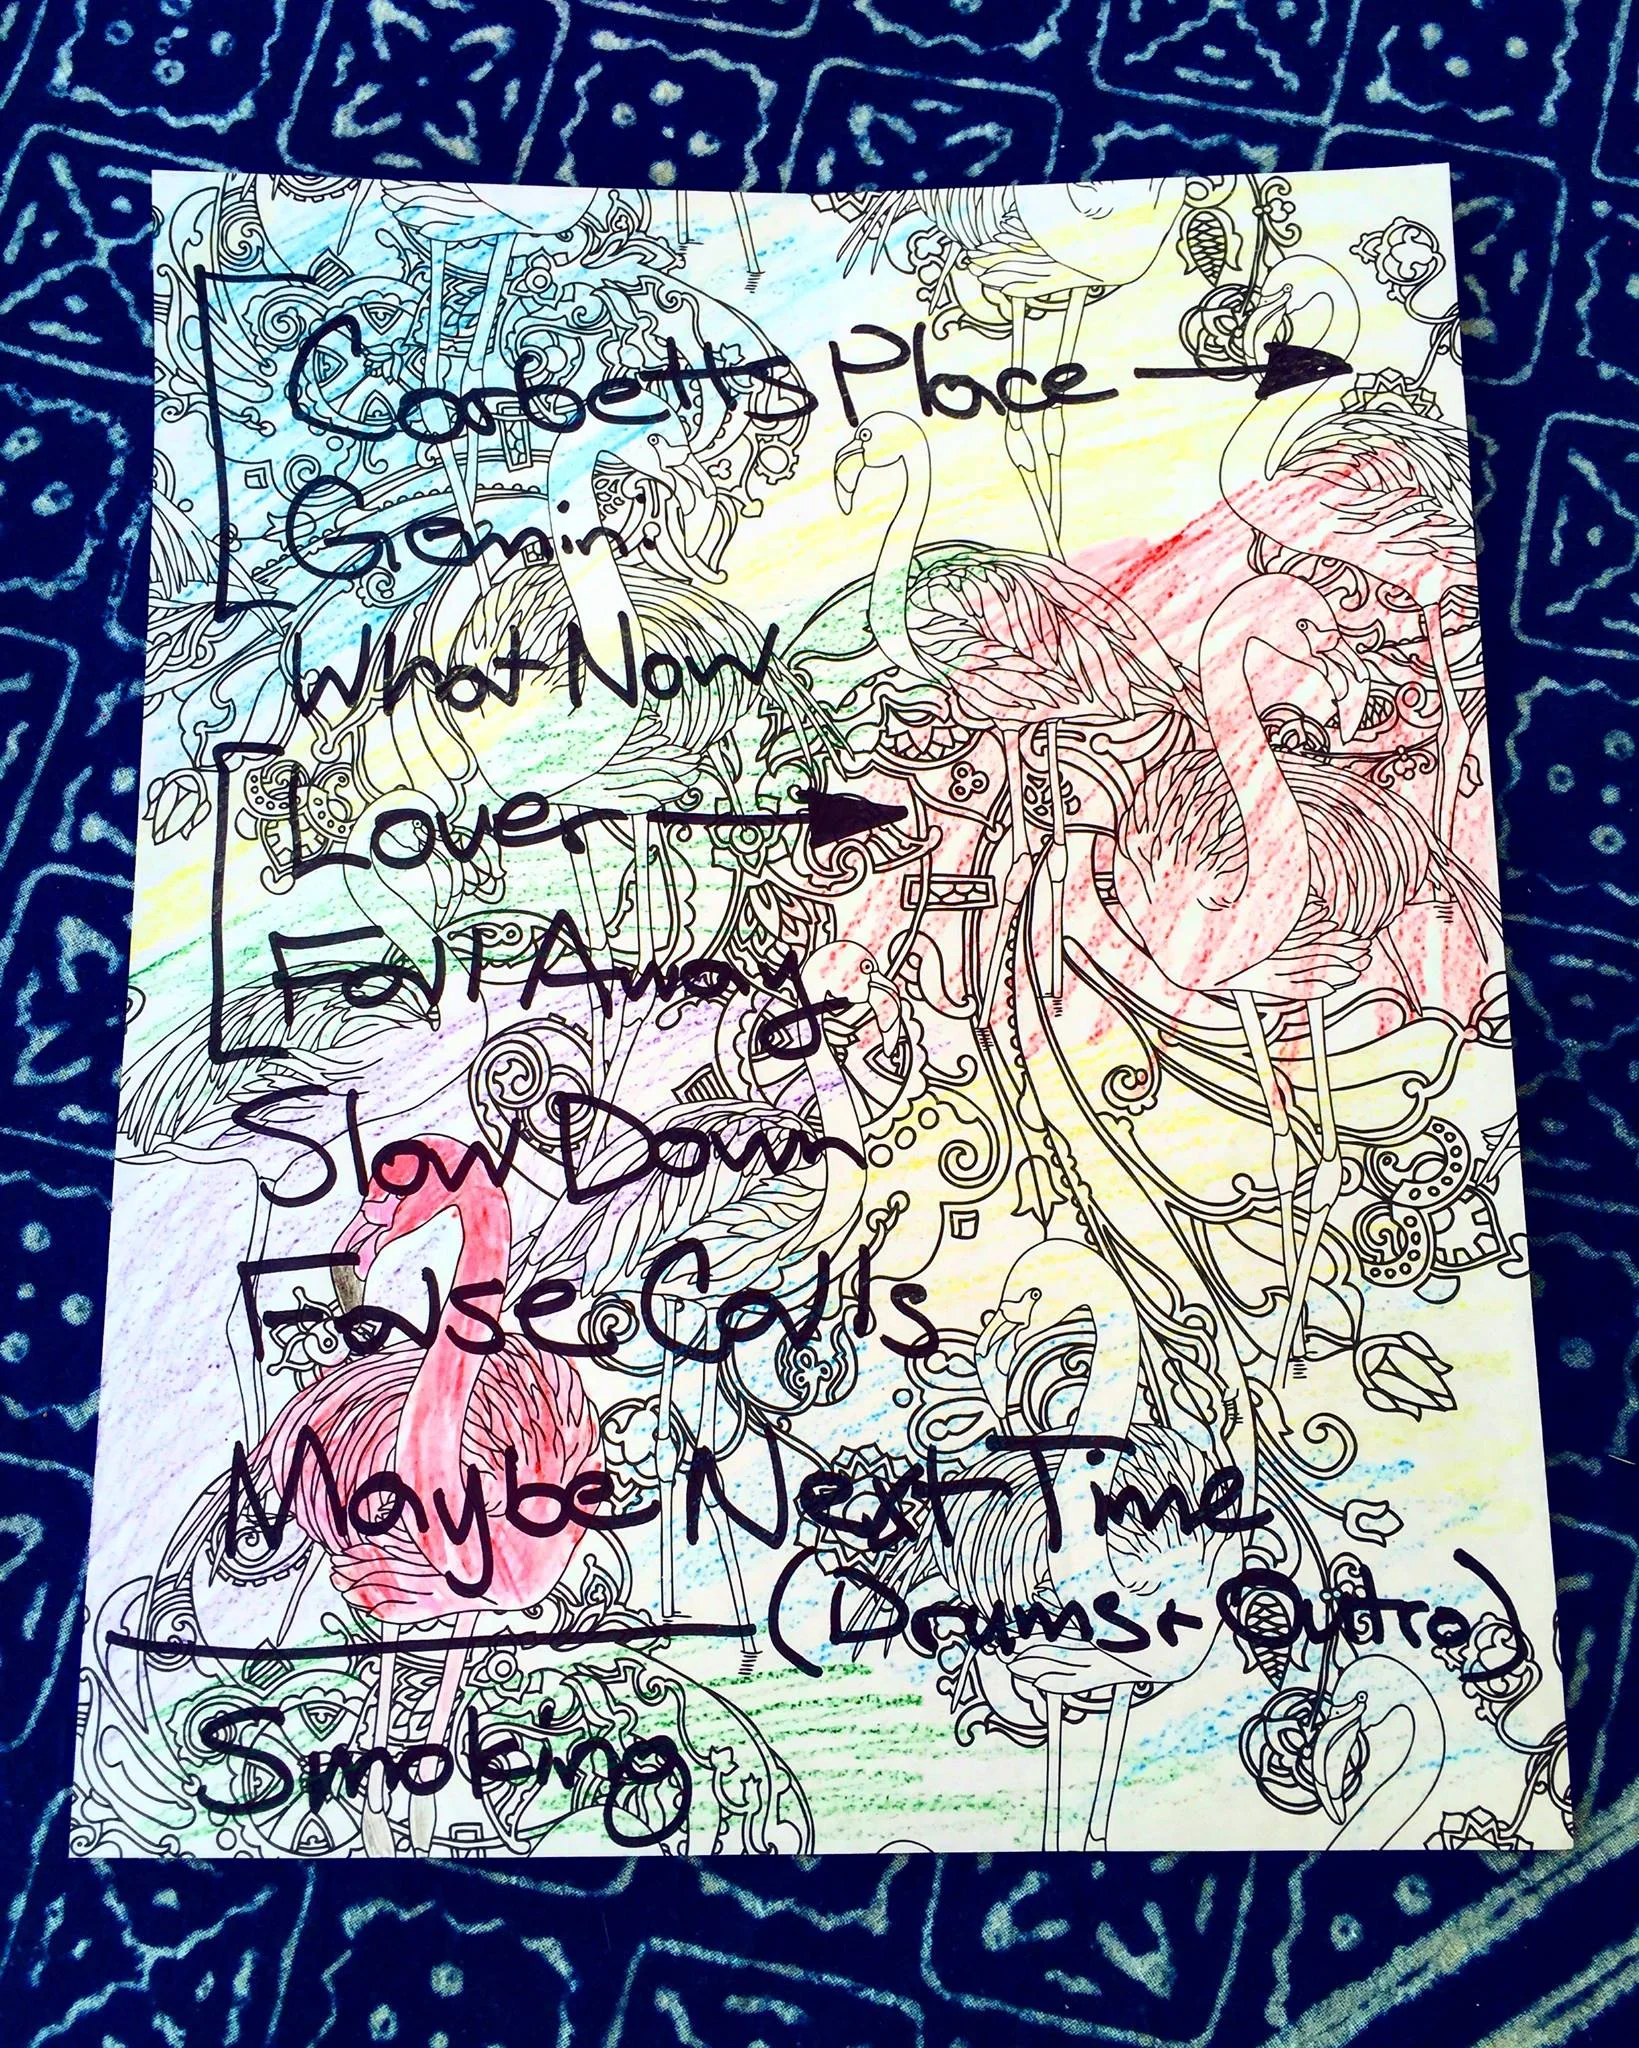 Corbetts Place
Gemini
What Now
Lover
Fall Away
Slow Down
False Calls
Maybe Next Time
(Drums + Outro)
Smoking